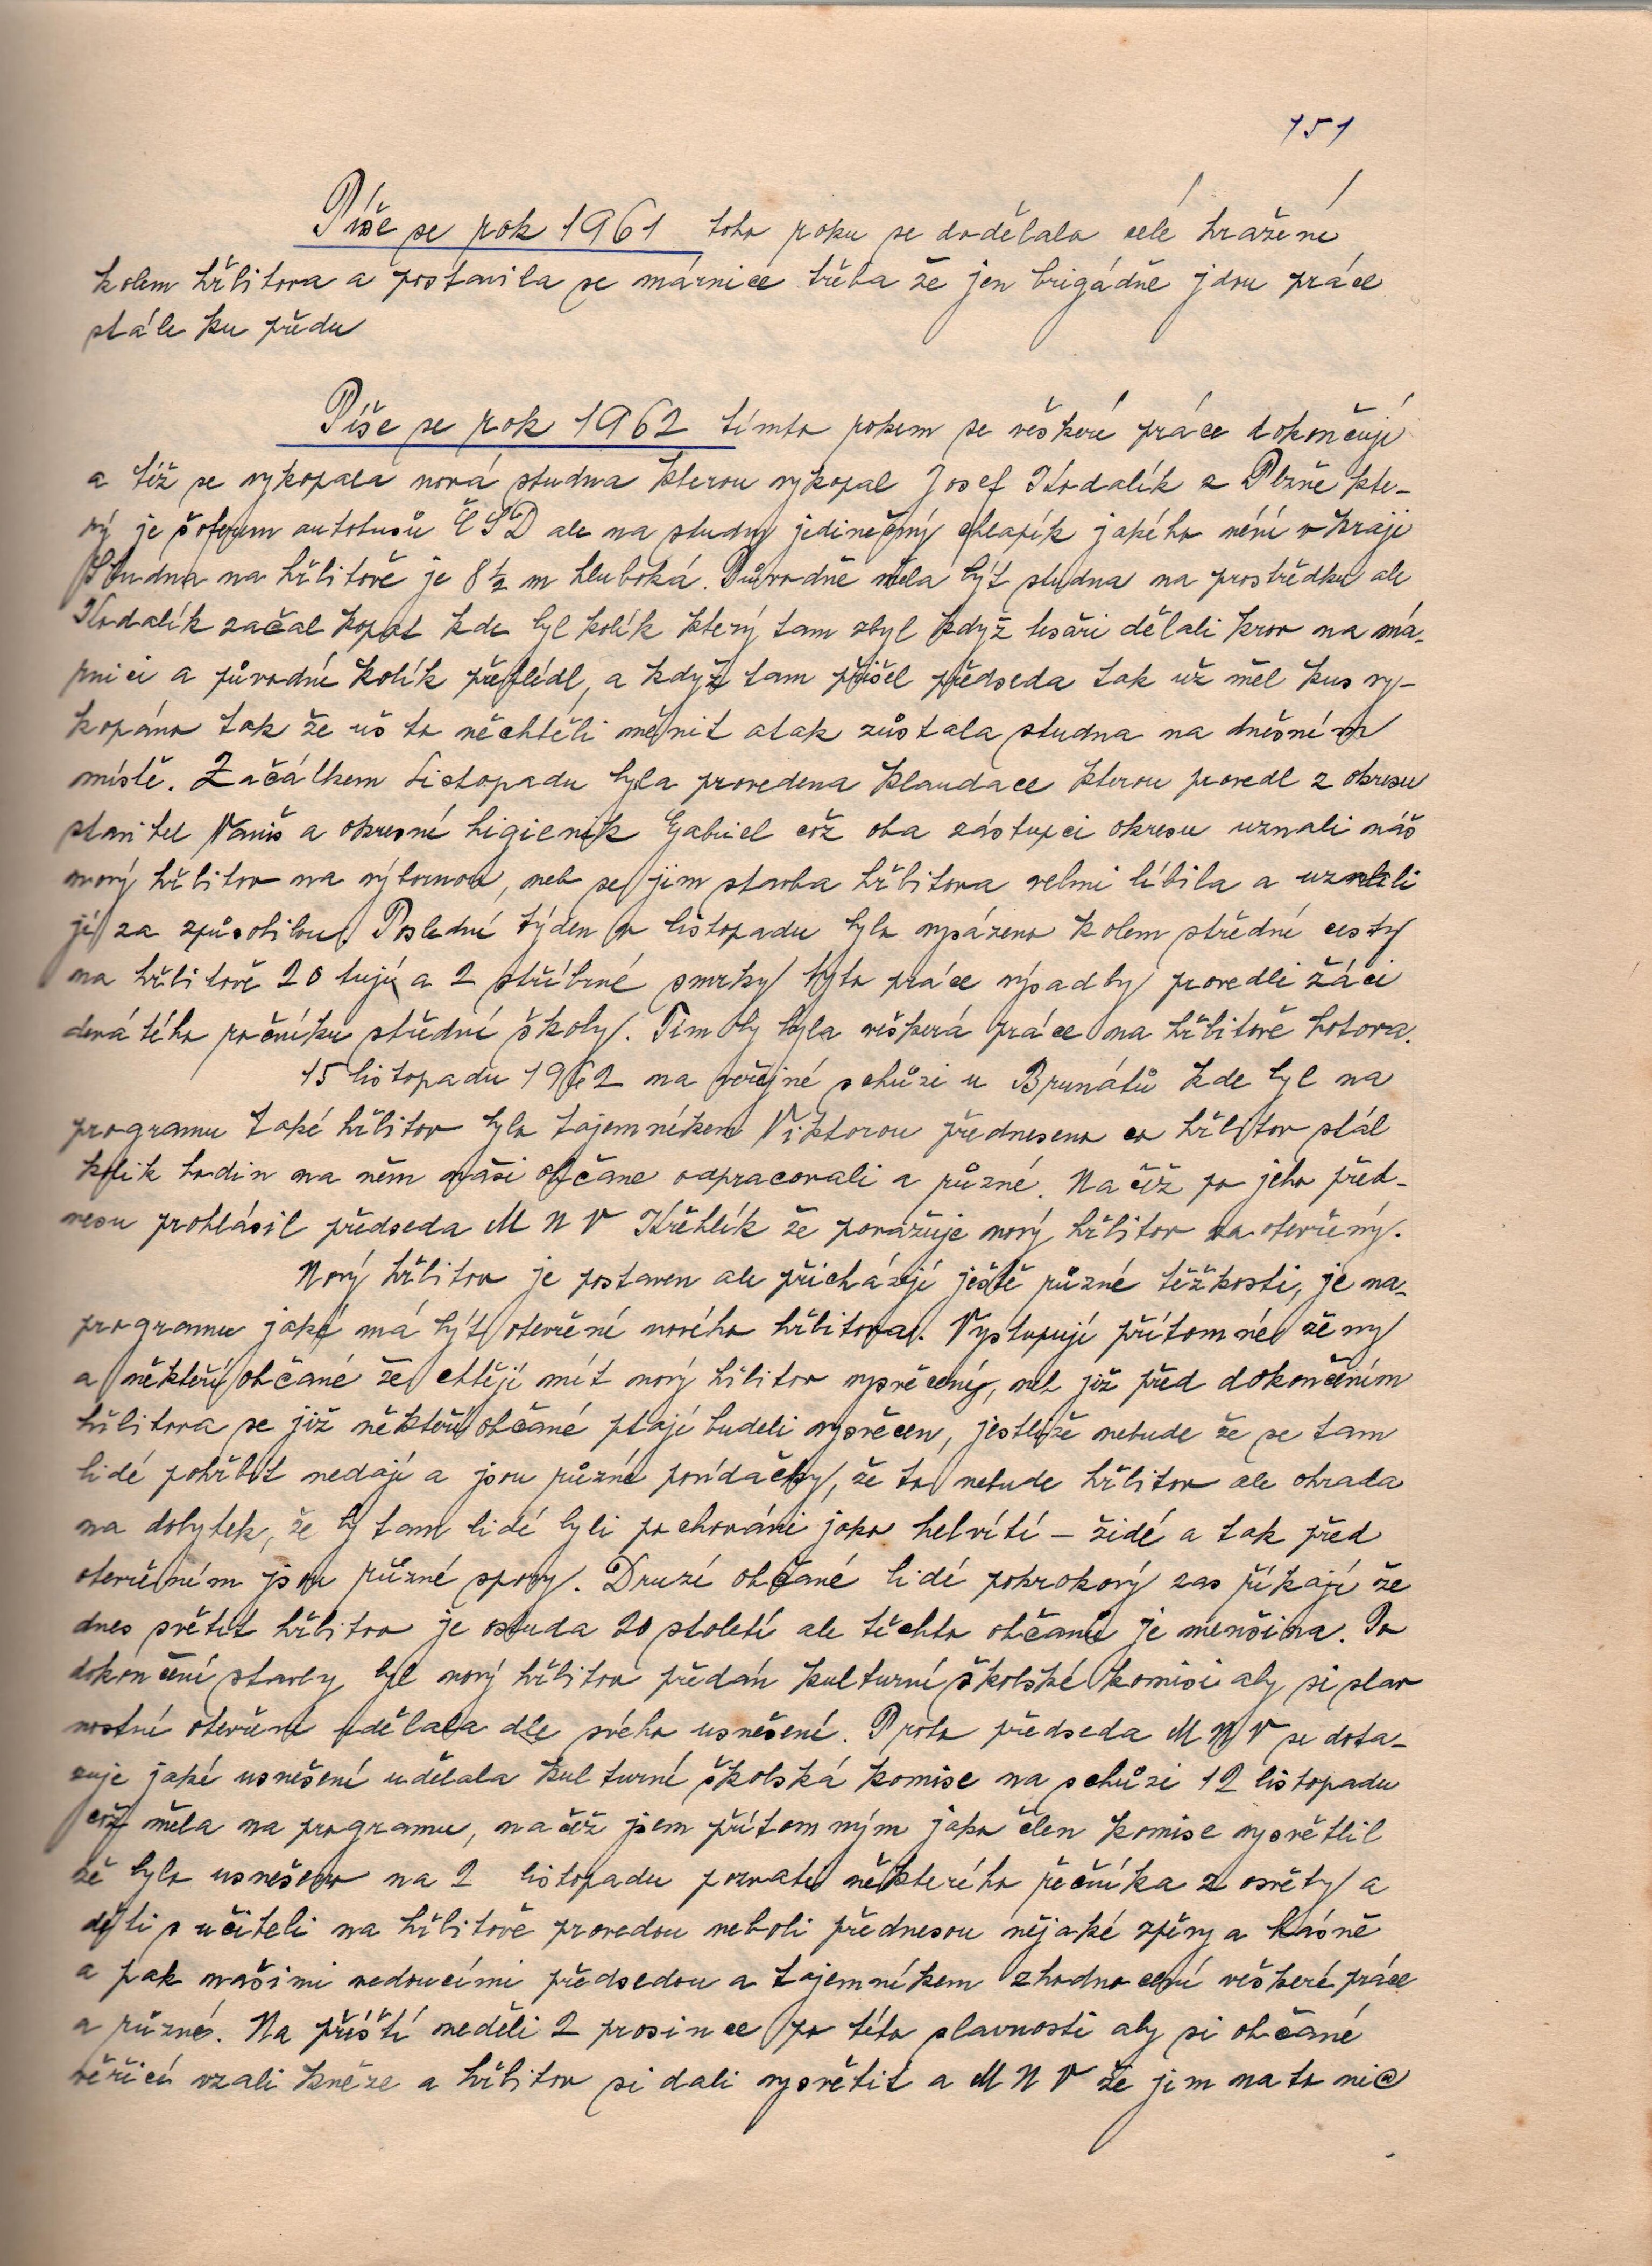 151
Píše se rok 1961 toho roku se dodělalo celé hražení
kolem hřbitova a postavila se márnice třeba že jen brigádně jdou práce
stále ku předu
Píše se rok 1962 tímto rokem se veškeré práce dokončují
a též se vykopala nová studna kterou vykopal Josef Kodalík z Plzně kte-
rý je šoferem autobusů ČSD ale na studny jedinečný chlapík jakého néní v kraji
Studna na hřbitově je 8½ m hluboká. Původně měla být studna na prostředku ale
Kodalík začal kopat kde byl kolík který tam zbyl když tesaři dělali krov na má-
rnici a původní kolík přehlídl, a když tam přišel předseda tak už měl kus vy-
kopáno tak že uš to něchtěli měnit atak zůstala studna na dnešním
místě. Začátkem Listopadu byla provedena klaudace kterou provedl z okresu
stavitel Vaniš a okresní higienik Gabriel což oba zástupci okresu uznali náš
nový hřbitov na výbornou, neb se jim stavba hřbitova velmi líbila a uznali
jí za způsobilou. Poslední týden v listopadu bylo vysázeno kolem střední cesty
na hřbitově 20 tují a 2 stříbrné smrky tyto práce výsadby provedli žáci
devátého ročníku střední školy. Tím by byla veškerá práce na hřbitově hotova.
15 listopadu 1962 na veřejné schůzi u Brunátů kde byl na
programu také hřbitov bylo tajemníkem Viktorou předneseno co hřbitov stál
kolik hodin na něm naši občane odpracovali a různé. Načež po jeho před-
nesu prohlásil předseda M N V Křehlík že považuje nový hřbitov za otevřený.
Nový hřbitov je postaven ale přicházejí ještě různé těžkosti, je na-
programu jaké má být otevření nového hřbitova. Vystupují přítomné ženy
a někteří občané že chtějí mít nový hřbitov vysvěcený, neb již před dokončením
hřbitova se již někteří občané ptají budeli vysvěcen, jestliže nebude že se tam
lidé pohřbít nedají a jsou různé povídačky, že to nebude hřbitov ale ohrada
na dobytek, že by tam lidé byli pochováni jako helvíti – židé a tak před
otevřením jsou různé spory. Druzí občané lidé pokrokový zas říkají že
dnes světit hřbitov je ostuda 20 století ale těchto občanů je menšina. Po
dokončení stavby byl nový hřbitov předán kulturní školské komisi aby si slav
nostní otevření udělala dle svého usnešení. Proto předseda M N V se dota-
zuje jaké usnešení udělala kulturní školská komise na schůzi 12 listopadu
což měla na programu, načež jsem přítomným jako člen komise vysvětlil
že bylo usnešeno na 2 listopadu pozvati některého řečníka z osvěty a
děti s učiteli na hřbitově provedou neboli přednesou nějaké zpěvy a básně
a pak našimi vedoucími předsedou a tajemníkem zhodnocení veškeré práce
a různé. Na příští neděli 2 prosince po této slavnosti aby si občané
věřící vzali kněze a hřbitov si dali vysvětit a M N V že jim na to nic